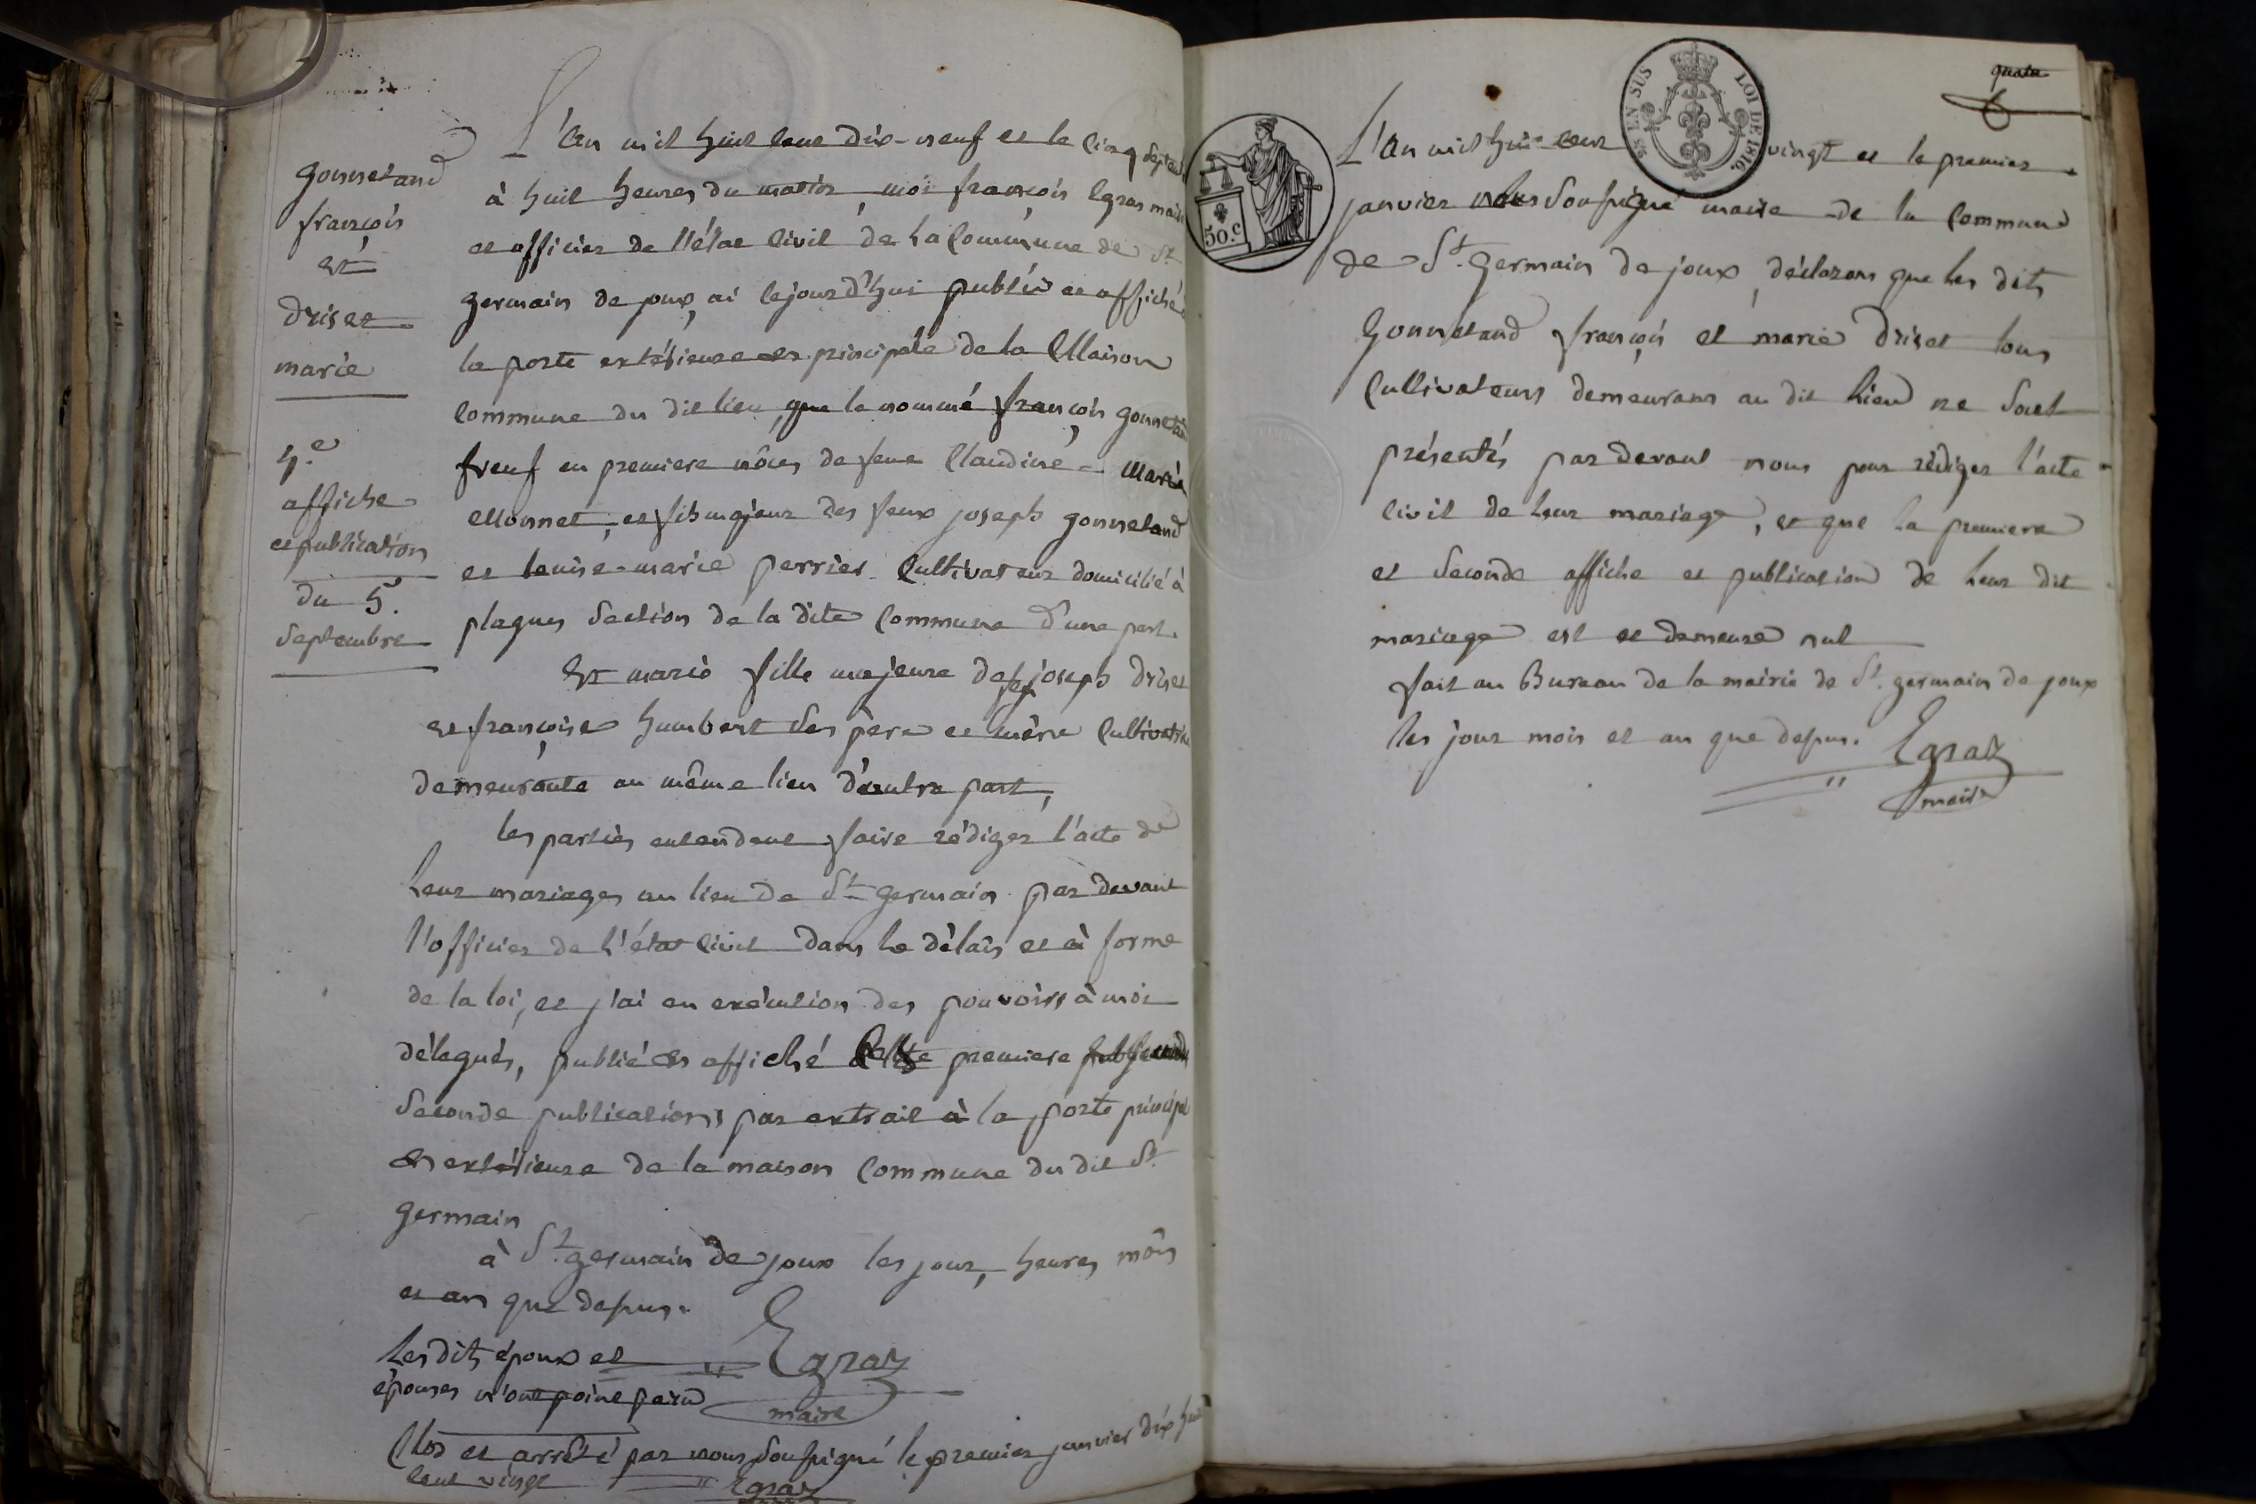 gonnetand
françois
et
driset
marie
4.e
affiche
et publication
du 5.
Septembre
L'an mil huit cent dix-neuf et le cinq
à huit heures du matin, moi françois Egraz maire
et officier de l'état Civil de la Commune de St
germain de joux, ai cejourd'hui publié et affiché
la porte extérieure et principale de la Maison
Commune du dit lieu, que le nommé françois
veuf en premiere nôces de feue Claudine-Marie
Monnet, et fils majeur des feux joseph gonnetand
et louise-marie perrier Cultivateur domicilié à
plagnes Section de la dite Commune d'une part.
Et marie fille majeure de feu joseph driset
et françoise humbert ses père et mère
demeurante au même lieu d'autre part,
les parties entendent faire rédiger l'acte de
leur mariages au lieu de St germain par devant
l'officier de l'état Civil dans le délais et à forme
de la loi, et j'ai en exécution des pouvoirs à moi
délegués, publié et affiché premiere
Seconde publications par extrait à la porte
et extérieure de la maison Commune du dit St.
germain
à St. germain de joux les jour, heures mois
et an que dessus.
Les dits époux et
épouses n'ont point paru
Egraz
maire
Clos et arrêté par nous Soussigné le premier janvier dix huit
cent vingt
Egraz
quatre
25 EN SUS
LOI DE 1816.
50.c
L'An mil huit cent vingt et le premier
janvier nous Soussigné maire de la Commune
de St. Germain de joux, déclarons que les dits
Gonnetand françois et marie driset tous
Cultivateurs demeurans au dit lieu ne Sont
présentés par devant nous pour rédiger l'acte
civil de leur mariage, et que la premiere
et Seconde affiche et publication de leur dit
mariage est et demeure nul
fait au Bureau de la mairie de St. germain de joux
les jour mois et an que dessus.
Egraz
maire